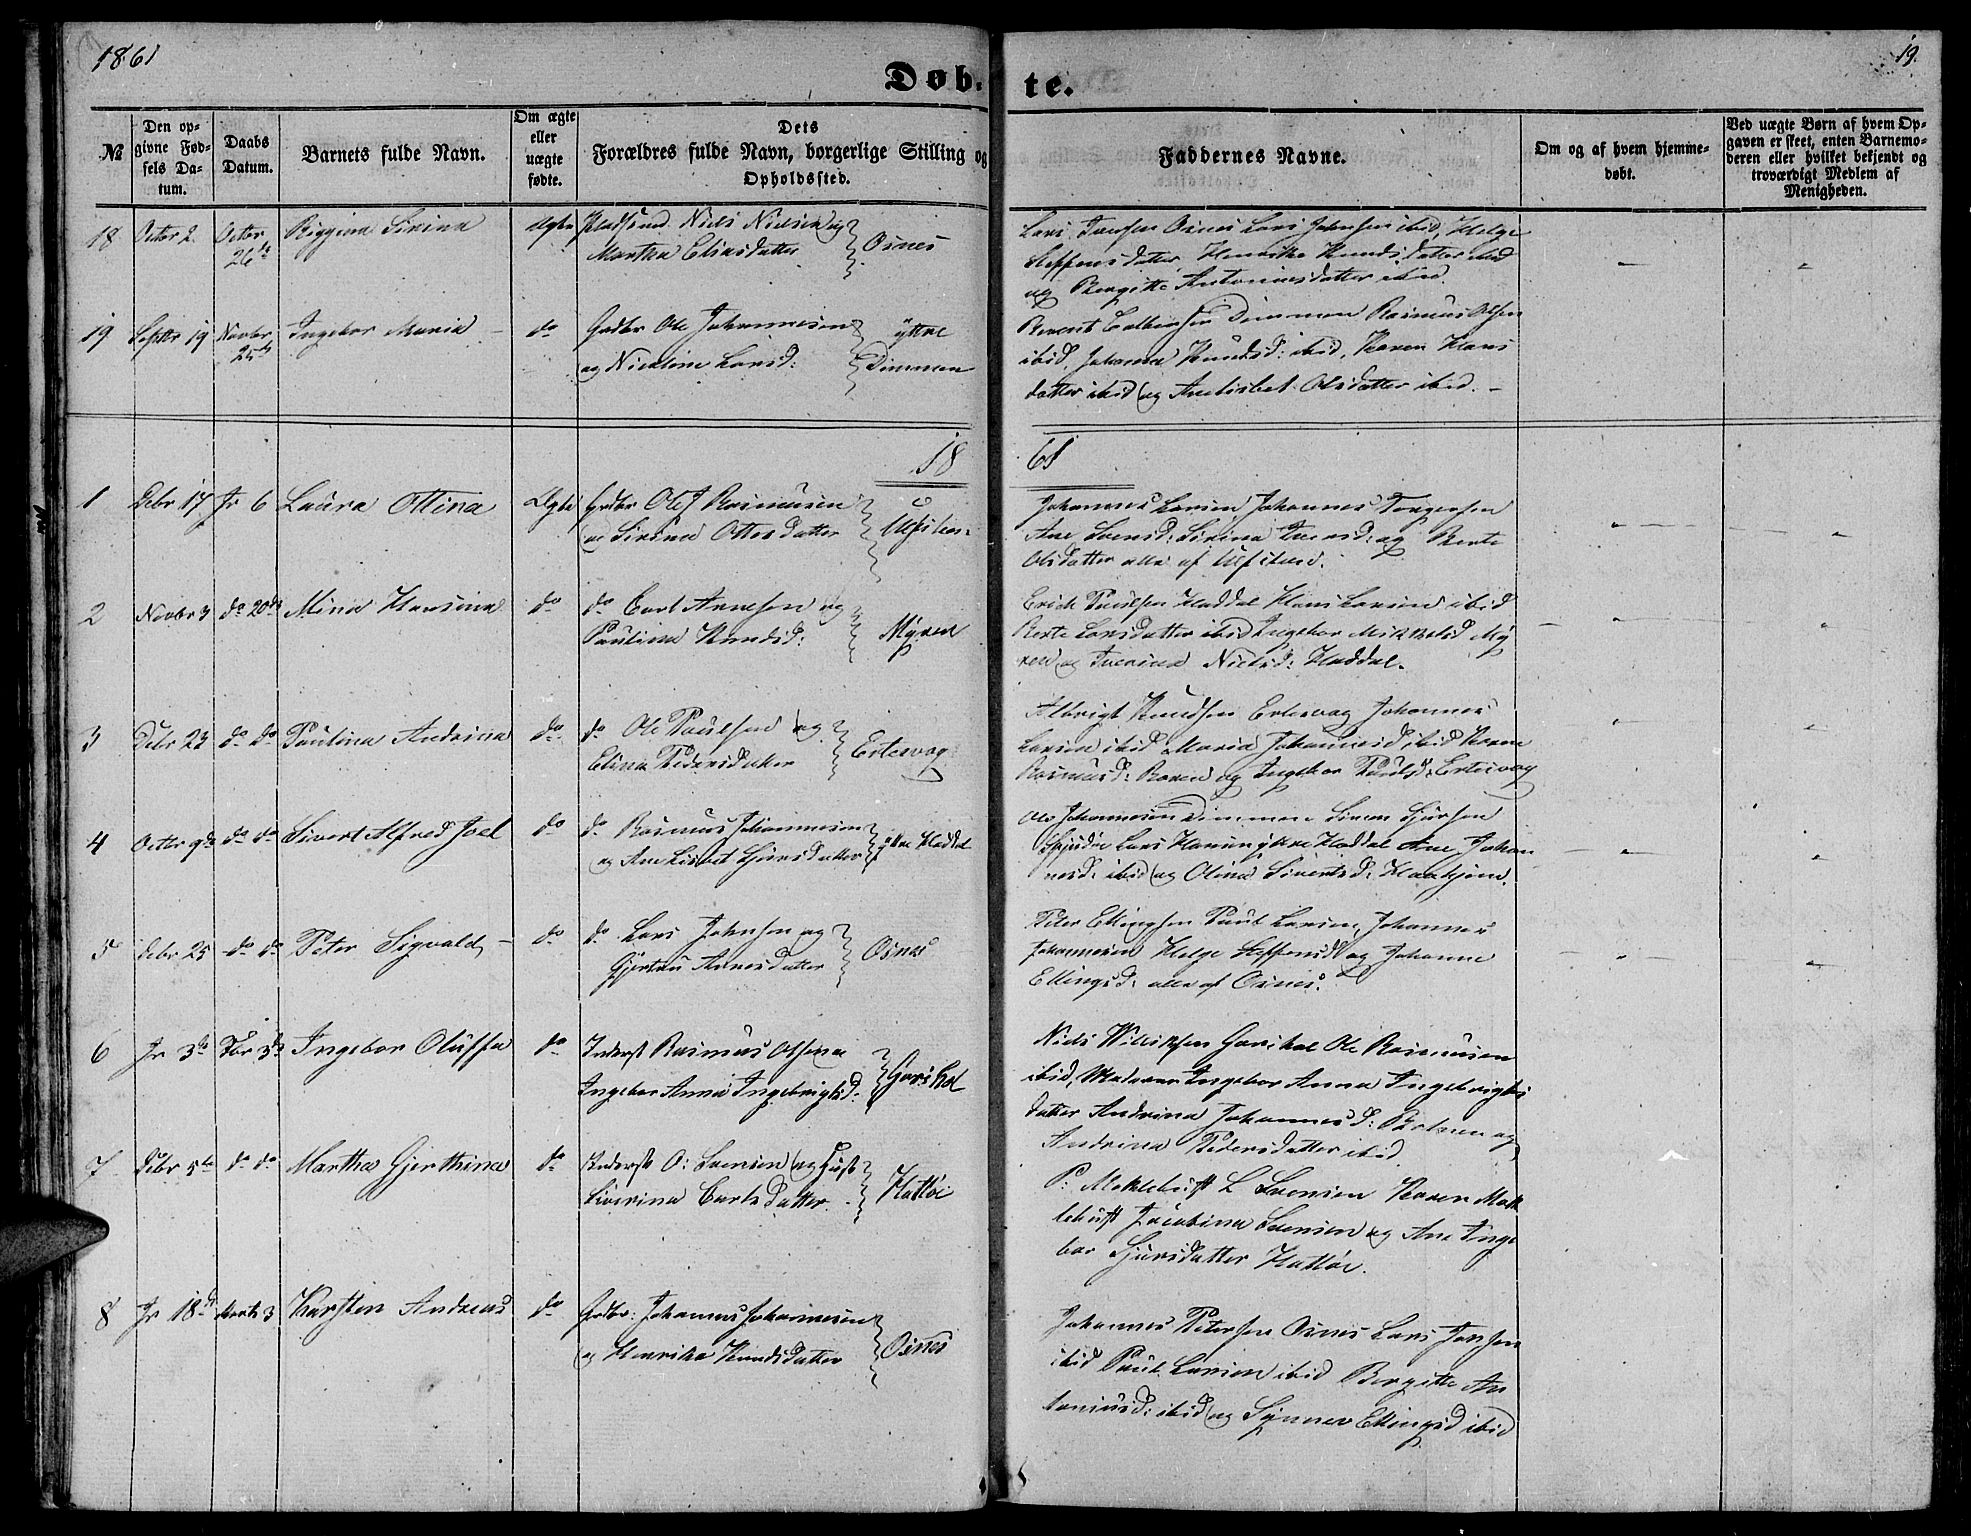 1861
19.
Døb- te.
№
Den op-
givne Fød-
sels Da-
tum.
Daabs
Datum.
Barnets fulde Navn.
Om ægte
eller
uægte
fødte.
Dets
Forældres fulde Navn, borgerlige Stilling og
Opholdssted.
Faddernes Navne.
Om og af hvem hjemme-
døbt.
Ved uægte Børn af hvem Op-
gaven er skeet, enten Barnemo-
deren eller hvilket bekjendt og
troværdigt Medlem af
Menigheden.
18 Octbr 2. Octbr Sirina Ægte Niels Nielsen og
26de Martha Eliasdatter Osnes
Lars Jansen Osnes Lars Johnsen ibid, Helge
Steffensdatter Henrike Knudsdatter ibid
og Bergitte Antoniusdatter ibid.
19 Septbr 19 Novbr Ingebor Maria do Grdbr Ole Johannesen yttre
25de og Nicoline Larsd: Dimmen
Dimmen Rasmus Olsen
ibid Johanne Knudsd: ibid, Karen Hans
datter ibid og Anelisbet Olsdatter ibid. -
18 61
1 Debr 17 Jr 6 Laura Ottina Ægte Grdbr Ole J Rasmusen
og Sirina Ottesdatter
Johannes Larsen, Johannes Torgersen
Ane Svensd: Sirina Iversd: og Berte
Olsdatter alle af
2 Novbr 3 do 20de Mina Hansina do do Carl Arnesen og
Paulina Knudsd: Myren
Erick Paulsen Haddal Hans Larsen ibid
Berte Larsdatter ibid Ingebor Mikkelsd My
ren og Iverina Nielsd: Haddal.
3 Debr 23 do do Paulina Andrina do do Ole Paulsen og
Elina Pedersdatter Eitesvag
Albrigt Knudsen Johannes
Larsen ibid Maria Johannesd ibid Karen
Rasmusd: og Ingebor Paulsd:
4 Octbr 9de do do Sivert Alfred Joel do do Rasmus Johannesen
og Ane Lisbet Sjursdatter ytre Haddal
Ole Johannesen Dimmen Simen Sjursen
Lars Hansen ytre Haddal Ane Johan
nesd: ibid og Olina Sivertsd: Haakjønn.
5 Debr 25 do do Peter Sigvald - do do Lars Johnsen og
Gjertru Arnesdatter Osnes
Peter Ellingsen Paul Larsen, Johannes
Johannesen Helge Steffensd og Johanne
Ellingsd: alle af Osnes.
6 Jr 3de Fbr 3de Ingebor Oluffa do Inderst Rasmus Olsen
Ingebor Anna Ingebrigtsd: Garshol
Niels Garshol Ole Rasmusen
ibid, Moderen Ingebor Anna Ingebrigts
datter Andrina Johannesd: og
Andrina Pedersdatter ibid
7 Debr 5te do do Martha Gjerthina do Inderst O: Svensen og Hust
Siverina Carlsdatter. Hatløe
P: Moklebust L Svensen Karen Mok
lebust Jacobina Svensen og Ane Inge
bor Sjursdatter Hatløe.
8 Jr 18de Marts 3 Karsten Andreas do Grdbr: Johannes Johannesen
og Henrike Knudsdatter Osnes
Johannes Petersen Osnes Lars Jansen
ibid Paul Larsen ibid Bergitte An
toniusd: ibid og Synnev Ellingsd ibid